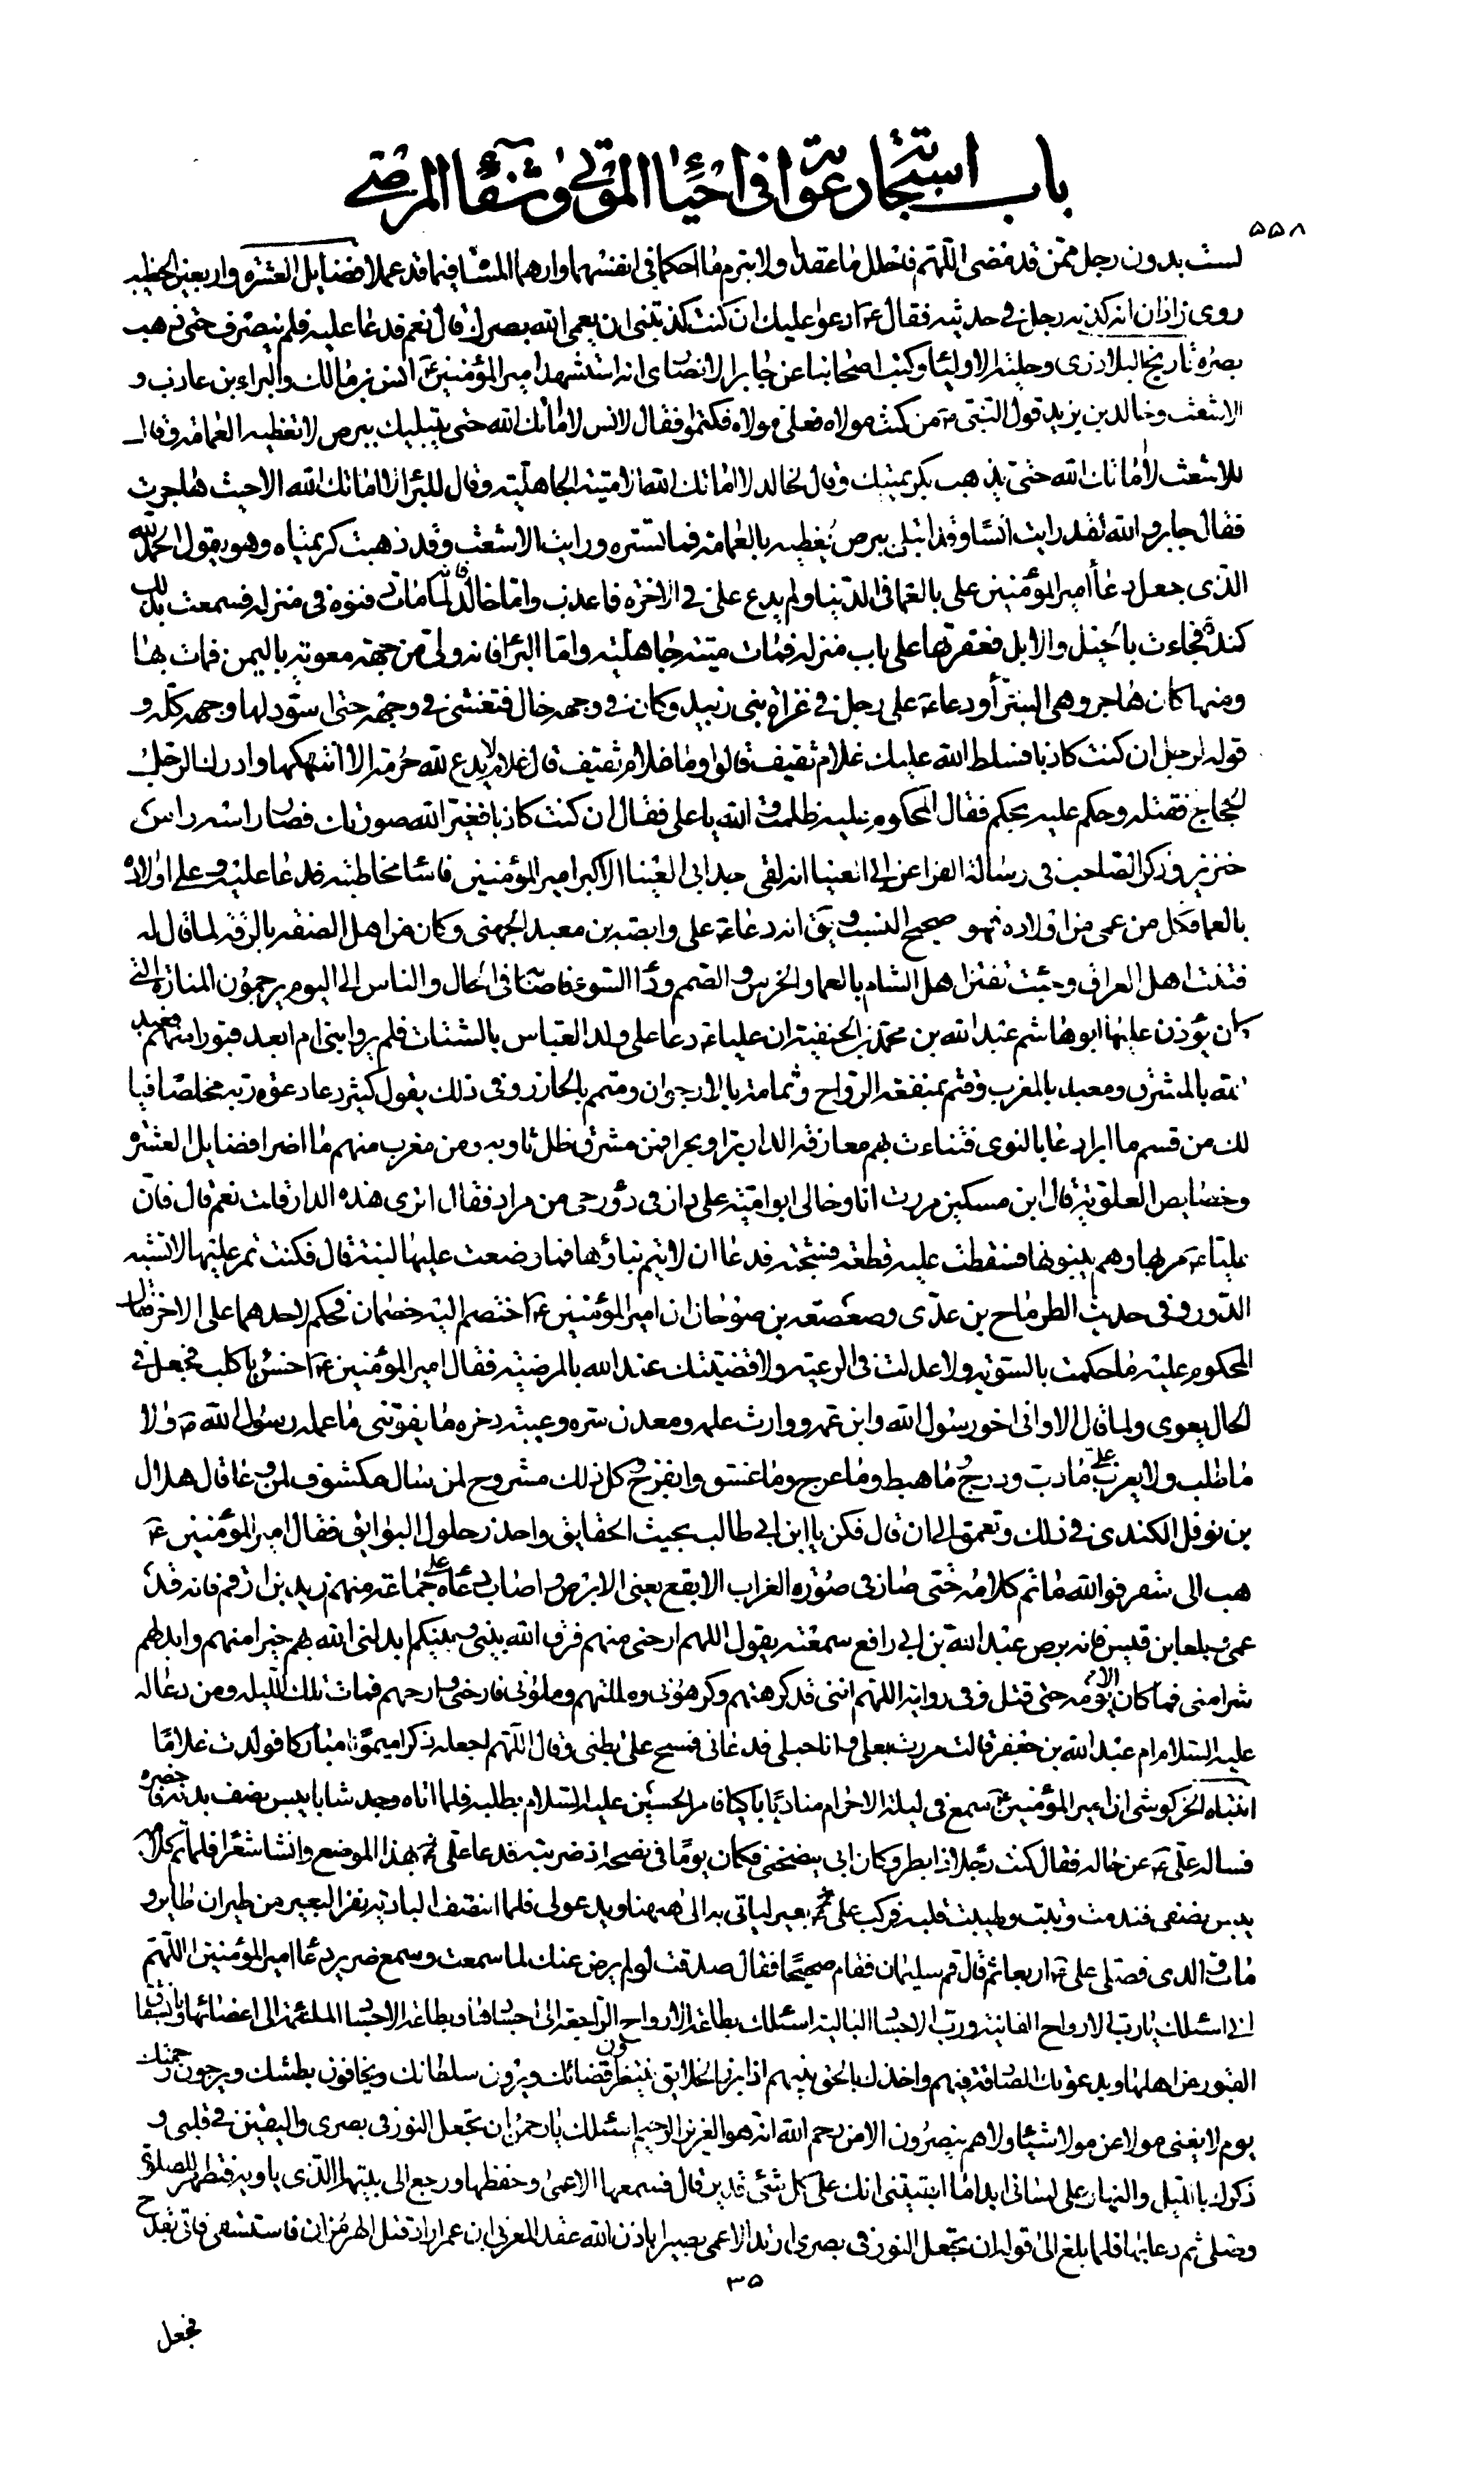 باب استجابة دعواته في احياء الموتى وشفاء المرضى
٥٥٨
لست بدون رجل ممن قد مضى اللهم فاحلل ما عقدا ولا تبرم ما احكما في انفسهما وارهما المسائة فيما قد عملا فضايل العشرة واربعين الخطيب
روى زاذان انه كذبه رجل في حديثه فقال ع ادعو عليك ان كنت كذبتني ان يعمى الله بصرك قال نعم فدعا عليه فلم ينصرف حتى ذهب
بصره تاريخ البلاذري وحلية الاولياء وكتب اصحابنا عن جابر الانصارى انه استشهد امير المؤمنين ع انس بن مالك والبراء بن عازب و
الاشعث وخالد بن يزيد قول النبي ص من كنت مولاه فعلي مولاه فكتموا فقال لانس لا اماتك الله حتى يبتليك ببرص لا تغطيه العمامة وقال
للاشعث لا اماتك الله حتى يذهب بكريمتيك وقال لخالد لا اماتك الله الا ميتة الجاهلية وقال للبراء لا اماتك الله الا حيث هاجرت
فقال جابر والله لقد رايت انسا وقد ابتلى ببرص يغطيه بالعمامة فما تستره ورايت الاشعث وقد ذهبت كريمتاه وهو يقول الحمد لله
الذى جعل دعاء امير المؤمنين علي بالعما في الدنيا ولم يدع علي في الاخرة فاعذب واما خالد فانه لما مات دفنوه في منزله فسمعت بذلك
كندة فجاءت بالخيل والابل فعقرتها على باب منزله فمات ميتة جاهلية واما البراء فانه ولى من جهة معوية باليمن فمات بها
ومنها كان هاجر وهى السراة ودعا ع على رجل في غزاة بني زبيد وكان في وجهه خال فتغشى في وجهه حتى اسود لها وجهه كله و
قوله لرجل ان كنت كاذبا فسلط الله عليك غلام ثقيف قالوا وما غلام ثقيف قال غلام لا يدع لله حرمة الا انتهكها وادرك الرجل
الحجاج فقتله وحكم عليه بحكم فقال المحكوم عليه ظلمت والله يا علي فقال ان كنت كاذبا فغير الله صورتك فصار راسه راس
خنزير وذكر الصاحب في رسالة الغراء عن ابي العيناء انه لقى جد ابي العيناء الاكبر امير المؤمنين فاساء مخاطبته فدعا عليه وعلى اولاده
بالعما فكل من عمى من اولاده فهو صحيح النسب ويق انه دعا ع على وابصة بن معبد الجهنى وكان من اهل الصفة بالرقة لما قال له
فتنت اهل العراق وجئت تفتن اهل الشام بالعما والخرس والصمم وداء السوء فاصابه في الحال والناس الى اليوم يرجمون المنارة التى
كان يؤذن عليها ابو هاشم عبد الله بن محمد بن الحنفية ان عليا ع دعا على ولد العباس بالشتات فلم يروا بني ام ابعد قبورا منهم فعبد
الله بالمشرق ومعبد بالمغرب وقثم بمنفعة الرواح وثمامة بالارجوان ومتمم بالخازر وفى ذلك يقول كثير دعا دعوة ربه مخلصا فيا
لك من قسم ما ابرا دعا بالنوى فتناءت بهم معارفة الدار برا وبحرا فمن مشرق ظل ثاو به ومن مغرب منهم ما اضرا فضايل العشرة
وخصايص العلوية قال ابن مسكين مررت انا وخالى ابو امية على دار في دور حى من مراد فقال اترى هذه الدار قلت نعم قال فان
عليا ع مر بها وهم يبنونها فسقطت عليه قطعة فشجته فدعا ان لا يتم بناؤها فما وضعت عليها لبنة قال فكنت تمر عليها لا تشبه
الدور وفى حديث الطرماح بن عدى وصعصعة بن صوحان ان امير المؤمنين ع اختصم اليه خصمان فحكم لاحدهما على الاخر فقال
المحكوم عليه ما حكمت بالسوية ولا عدلت في الرعية ولا قضيتك عند الله بالمرضية فقال امير المؤمنين ع اخسأ يا كلب فجعل في
الحال يعوى ولما قال الا وانى اخو رسول الله وابن عمه ووارث علمه ومعدن سره وعيبة ذخره ما يفوتنى ما علمه رسول الله ص ولا
ما طلب ولا يعزب علي ما دب ودرج وما هبط وما عرج وما غسق وانفرج وكل ذلك مشروح لمن سال مكشوف لمن وعا قال هلال
بن نوفل الكندى في ذلك وتعمق الى ان قال فكن يا ابن ابي طالب بحيث الحقايق واحذر حلول البوايق فقال امير المؤمنين ع
هب الى سقر فوالله ما تم كلامه حتى صار في صورة الغراب الابقع يعنى الابرص واصاب دعاه ع على جماعة منهم زيد بن ارقم فانه قد
عمى وبلعا بن قيس فانه برص عبد الله بن ابي رافع سمعته يقول اللهم ارحنى منهم فرق الله بينى وبينكم ابدلنى الله بهم خيرا منهم وابدلهم
شرا منى فما كان الا يومه حتى قتل وفى رواية اللهم اننى قد كرهتهم وكرهونى ومللتهم وملونى فارحنى وارحهم فمات تلك الليلة ومن دعا له
عليه السلام ام عبد الله بن جعفر قالت مررت بعلي وانا حبلى فدعانى فمسح على بطنى وقال اللهم اجعله ذكرا ميمونا مباركا فولدت غلاما
انتباه الخركوشى ان امير المؤمنين ع سمع في ليلة الاحرام مناديا باكيا فامر الحسين عليه السلام بطلبه فلما اتاه وجد شابا يبس نصف بدنه فاحضره
فساله علي ع عن حاله فقال كنت رجلا ذا بطر وكان ابى ينصحنى فكان يوما في نصحه اذ ضربته فدعا علي بهذا الموضع وانشا شعرا فلما تم كلامه
يبس نصفى فندمت وتبت وطيبت قلبه فركب على بعير لياتى بى الى ههنا ويدعو لى فلما انتصف البادية نفر البعير من طيران طاير و
مات والدى فصلى علي ع اربعا ثم قال قم سليما فقام صحيحا فقال صدقت لو لم يرض عنك لما سمعت وسمع ضرير دعاء امير المؤمنين اللهم
انى اسئلك يا رب الارواح الفانية ورب الاجساد البالية اسئلك بطاعة الارواح الراجعة الى اجسادها وبطاعة الاجساد الملتئمة الى اعضائها وبانشقاق
القبور عن اهلها وبدعوتك الصادقة فيهم واخذك بالحق بينهم اذا برز الخلايق ينتظرون قضائك ويرون سلطانك ويخافون بطشك ويرجون رحمتك
يوم لا يغنى مولا عن مولا شيئا ولا هم ينصرون الا من رحم الله انه هو العزيز الرحيم اسئلك يا رحمن ان تجعل النور في بصرى واليقين في قلبى و
ذكرك بالليل والنهار على لسانى ابدا ما ابقيتنى انك على كل شئ قدير قال فسمعها الاعمى وحفظها ورجع الى بيته الذى ياويه فتطهر للصلوة
وصلى ثم دعا بها فلما بلغ الى قوله ان تجعل النور في بصرى ارتد الاعمى بصيرا باذن الله عقد المغربى ان عمر اراد قتل الهرمزان فاستسقى فاتى بقدح
٣٥
فجعل